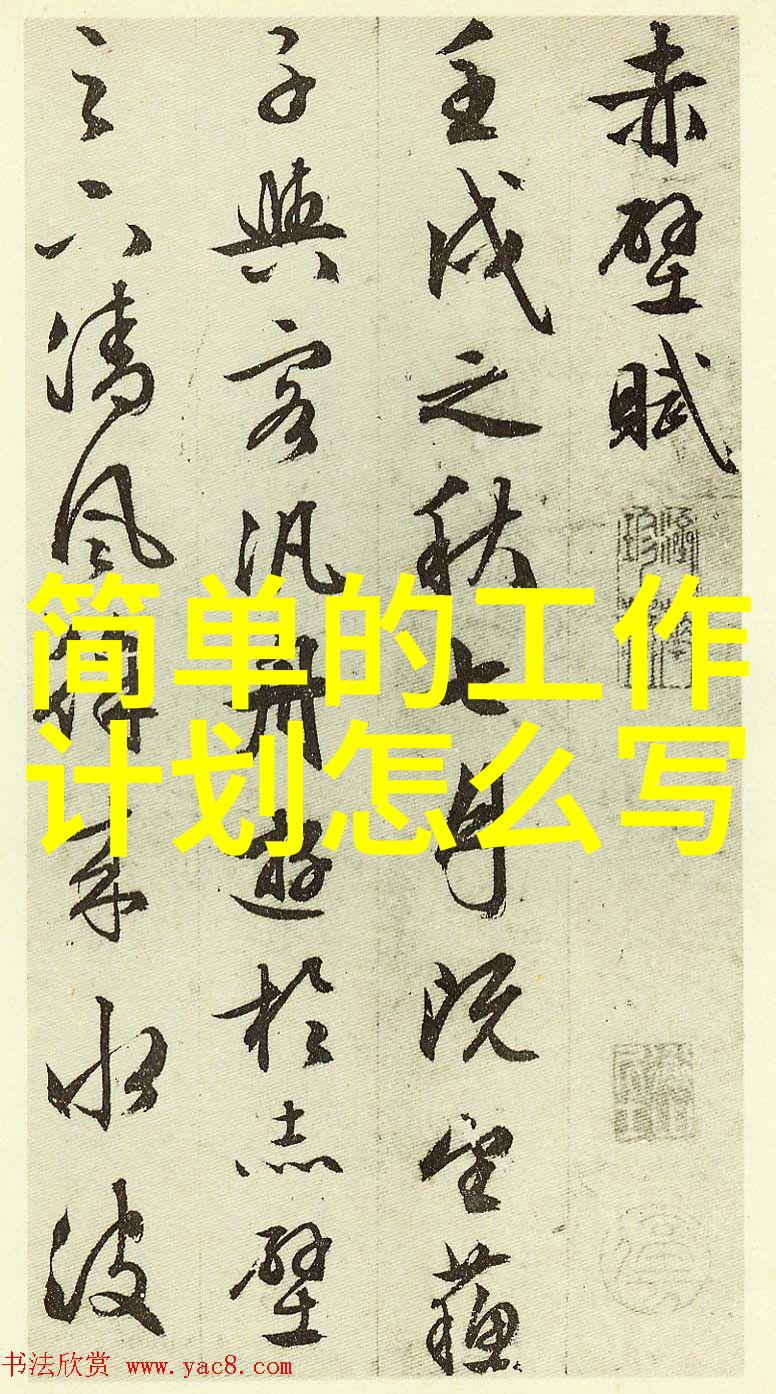 赤壁賦
壬戌之秋七月既望蘇
子與客汎舟遊於赤壁
之下清風徐来水波
简单的工作
计划怎么写
书法欣赏 www.yac8.com